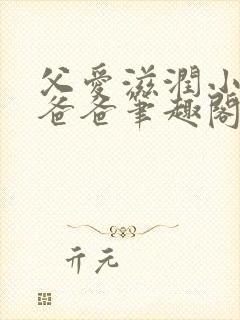 父愛滋潤小
爸爸筆趣閣
亓元